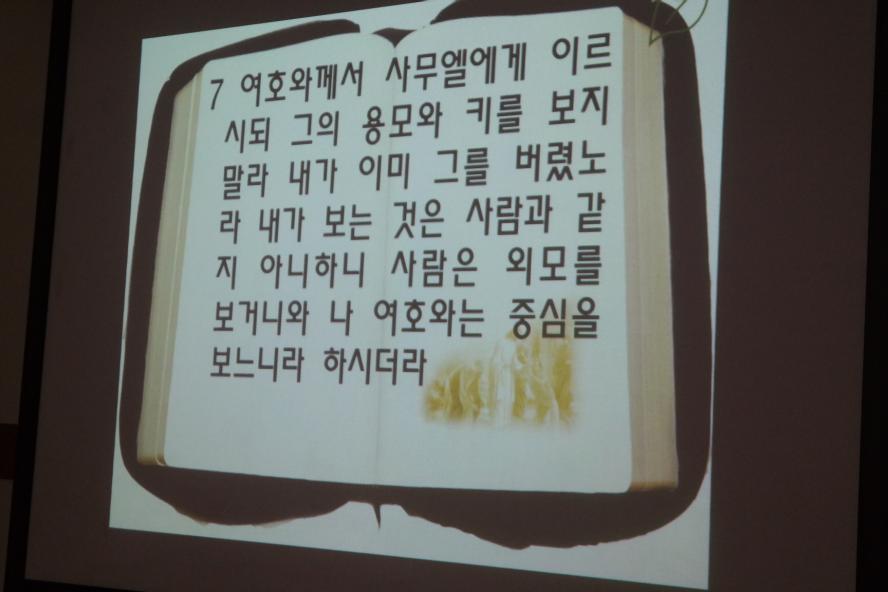 7 여호와께서 사무엘에게 이르
시되 그의 용모와 키를 보지
말라 내가 이미 그를 버렸노
라 내가 보는 것은 사람과 같
지 아니하니 사람은 외모를
보거니와 나 여호와는 중심을
보느니라 하시더라